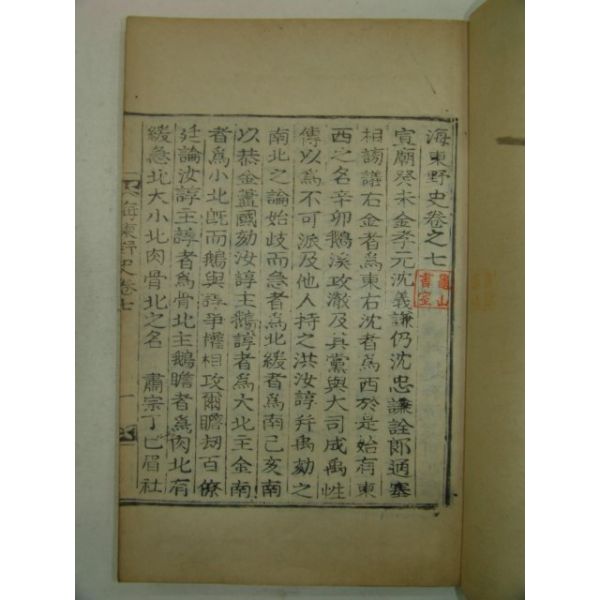 海東野史卷之七
龜山書室
宣廟癸未金孝元沈義謙仍沈忠謙詮郎通塞
相謗議右金者爲東右沈者爲西於是始有東
西之名辛卯鵝溪攻澈及其黨與大司成禹性
傳以爲不可派及他人持之洪汝諄幷禹劾之
南北之論始歧而急者爲北緩者爲南己亥南
以恭金藎國劾汝諄主鵝諄者爲大北主金南
者爲小北旣而鵝與諄爭權相攻爾瞻劫百僚
廷論汝諄主諄者爲骨北主鵝瞻者爲肉北有
緩急北大小北肉骨北之名 肅宗丁巳眉社
海東野史卷七 一